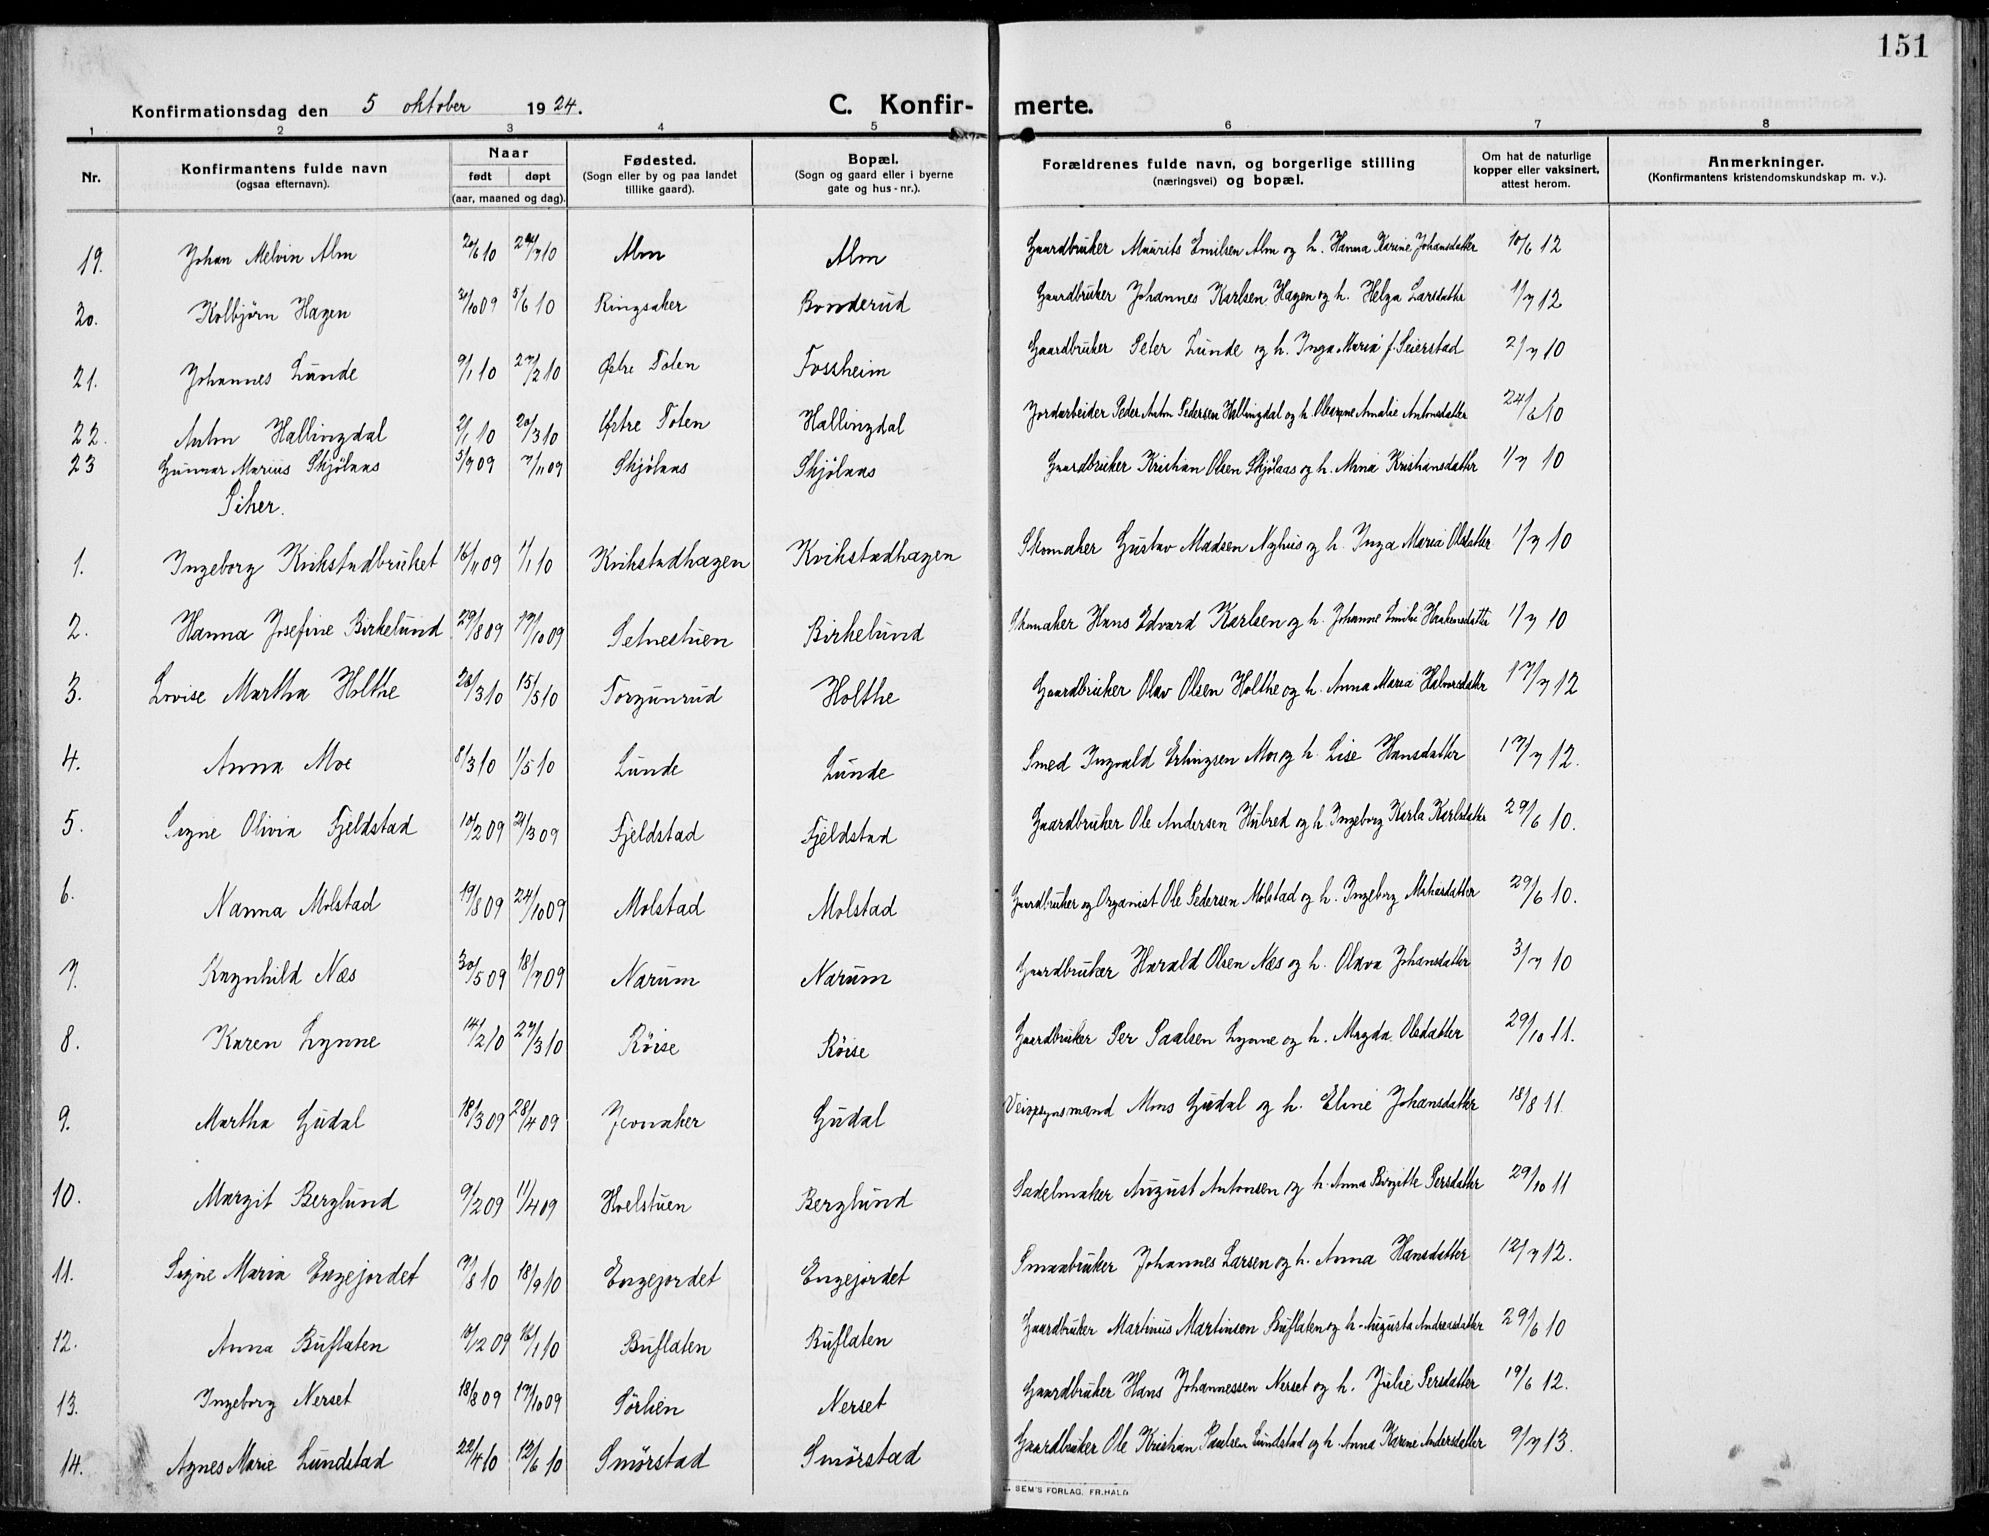 151
Konfirmationsdag den 5 oktober 1924. C. Konfir- merte.
1 2 3 4 5 6 7 8
Nr. Konfirmantens fulde navn (ogsaa efternavn). Naar født døpt (aar, maaned og dag). Fødested. (Sogn eller by og paa landet tillike gaard). Bopæl. (Sogn og gaard eller i byerne gate og hus-nr.). Forældrenes fulde navn, og borgerlige stilling (næringsvei) og bopæl. Om hat de naturlige kopper eller vaksinert, attest herom. Anmerkninger. (Konfirmantens kristendomskundskap m. v.).
19. Johan Melvin Alm 20/6 10 24/7 10 Alm Alm Gaardbruker Maurits Emilsen Alm og h. Hanna Karine Johansdatter 10/6 12
20. Kolbjörn Hagen 30/10 09 5/6 10 Ringsaker Bonderud Gaardbruker Johannes Karlsen Hagen og h. Helga Larsdatter 1/7 12
21. Johannes Lunde 9/1 10 27/2 10 Østre Toten Fossheim Gaardbruker Peter Lunde og h. Inga Maria f. Seierstad 2/7 10
22. Anton Hallingdal 2/1 10 20/3 10 Østre Toten Hallingdal Jordarbeider Peder Anton Pedersen Hallingdal og h. Oleane Amalie Antonsdatter 24/6 10
23 Gunnar Marius Skjölaas 5/9 09 7/11 09 Skjölaas Skjölaas Gaardbruker Kristian Olsen Skjölaas og h. Mina Kristiansdatter 1/7 10
Piker.
1. Ingeborg Kvikstadbruket 16/11 09 1/1 10 Kvikstadhagen Kvikstadhagen Skomaker Gustav Madsen Nyhus og h. Inga Maria Olsdatter 1/7 10
2. Hanna Josefine Birkelund 29/8 09 17/10 09 Setnestuen Birkelund Skomaker Hans Edvard Karlsen og h. Johanne Emilie Haakensdatter 1/7 10
3. Lovise Martha Holthe 20/3 10 15/5 10 Torgunrud Holthe Gaardbruker Olav Olsen Holthe og h. Anna Maria Halvorsdatter 17/7 12
4. Anna Moe 8/3 10 1/5 10 Lunde Lunde Smed Ingvald Erlingsen Moe og h. Lise Hansdatter 17/7 12.
5. Signe Olivia Fjeldstad 10/2 09 21/3 09 Fjeldstad Fjeldstad Gaardbruker Ole Andersen Hubred og h. Ingeborg Karla Karlsdatter 29/6 10.
6. Nanna Molstad 19/8 09 24/10 09 Molstad Molstad Gaardbruker og Organist Ole Pedersen Molstad og h. Ingeborg Mohasdatter 29/6 10.
7. Ragnhild Næs 30/5 09 18/7 09 Narum Narum Gaardbruker Harald Olsen Næs og h. Olava Johansdatter 3/7 10
8. Karen Lynne 14/2 10 27/3 10 Röise Röise Gaardbruker Per Paalsen Lynne og h. Magda Olsdatter 29/10 11.
9. Martha Gudal 18/3 09 28/4 09 Jevnaker Gudal Veiopsynsmand Mons Gudal og h. Eline Johansdatter 18/8 11
10. Margit Berglund 9/2 09 11/4 09 Hoelstuen Berglund Sadelmaker August Antonsen og h. Anna Birgitte Persdatter 29/10 11
11. Signe Maria Engejordet 7/8 10 18/9 10 Engejordet Engejordet Smaabruker Johannes Larsen og h. Anna Hansdatter 12/7 12.
12. Anna Buflaten 10/12 09 16/1 10 Buflaten Buflaten Gaardbruker Martinus Martinsen Buflaten og h. Augusta Andreasdatter 29/6 10
13. Ingeborg Nerset 18/8 09 17/10 09 Sörlien Nerset Gaardbruker Hans Johannessen Nerset og h. Julie Persdatter 19/6 12.
14. Agnes Marie Lundstad 22/4 10 12/6 10 Smörstad Smörstad Gaardbruker Ole Kristian Paulsen Lundstad og h. Anna Karine Andersdatter 9/7 13.
SEM'S FORLAG, FR.HALD